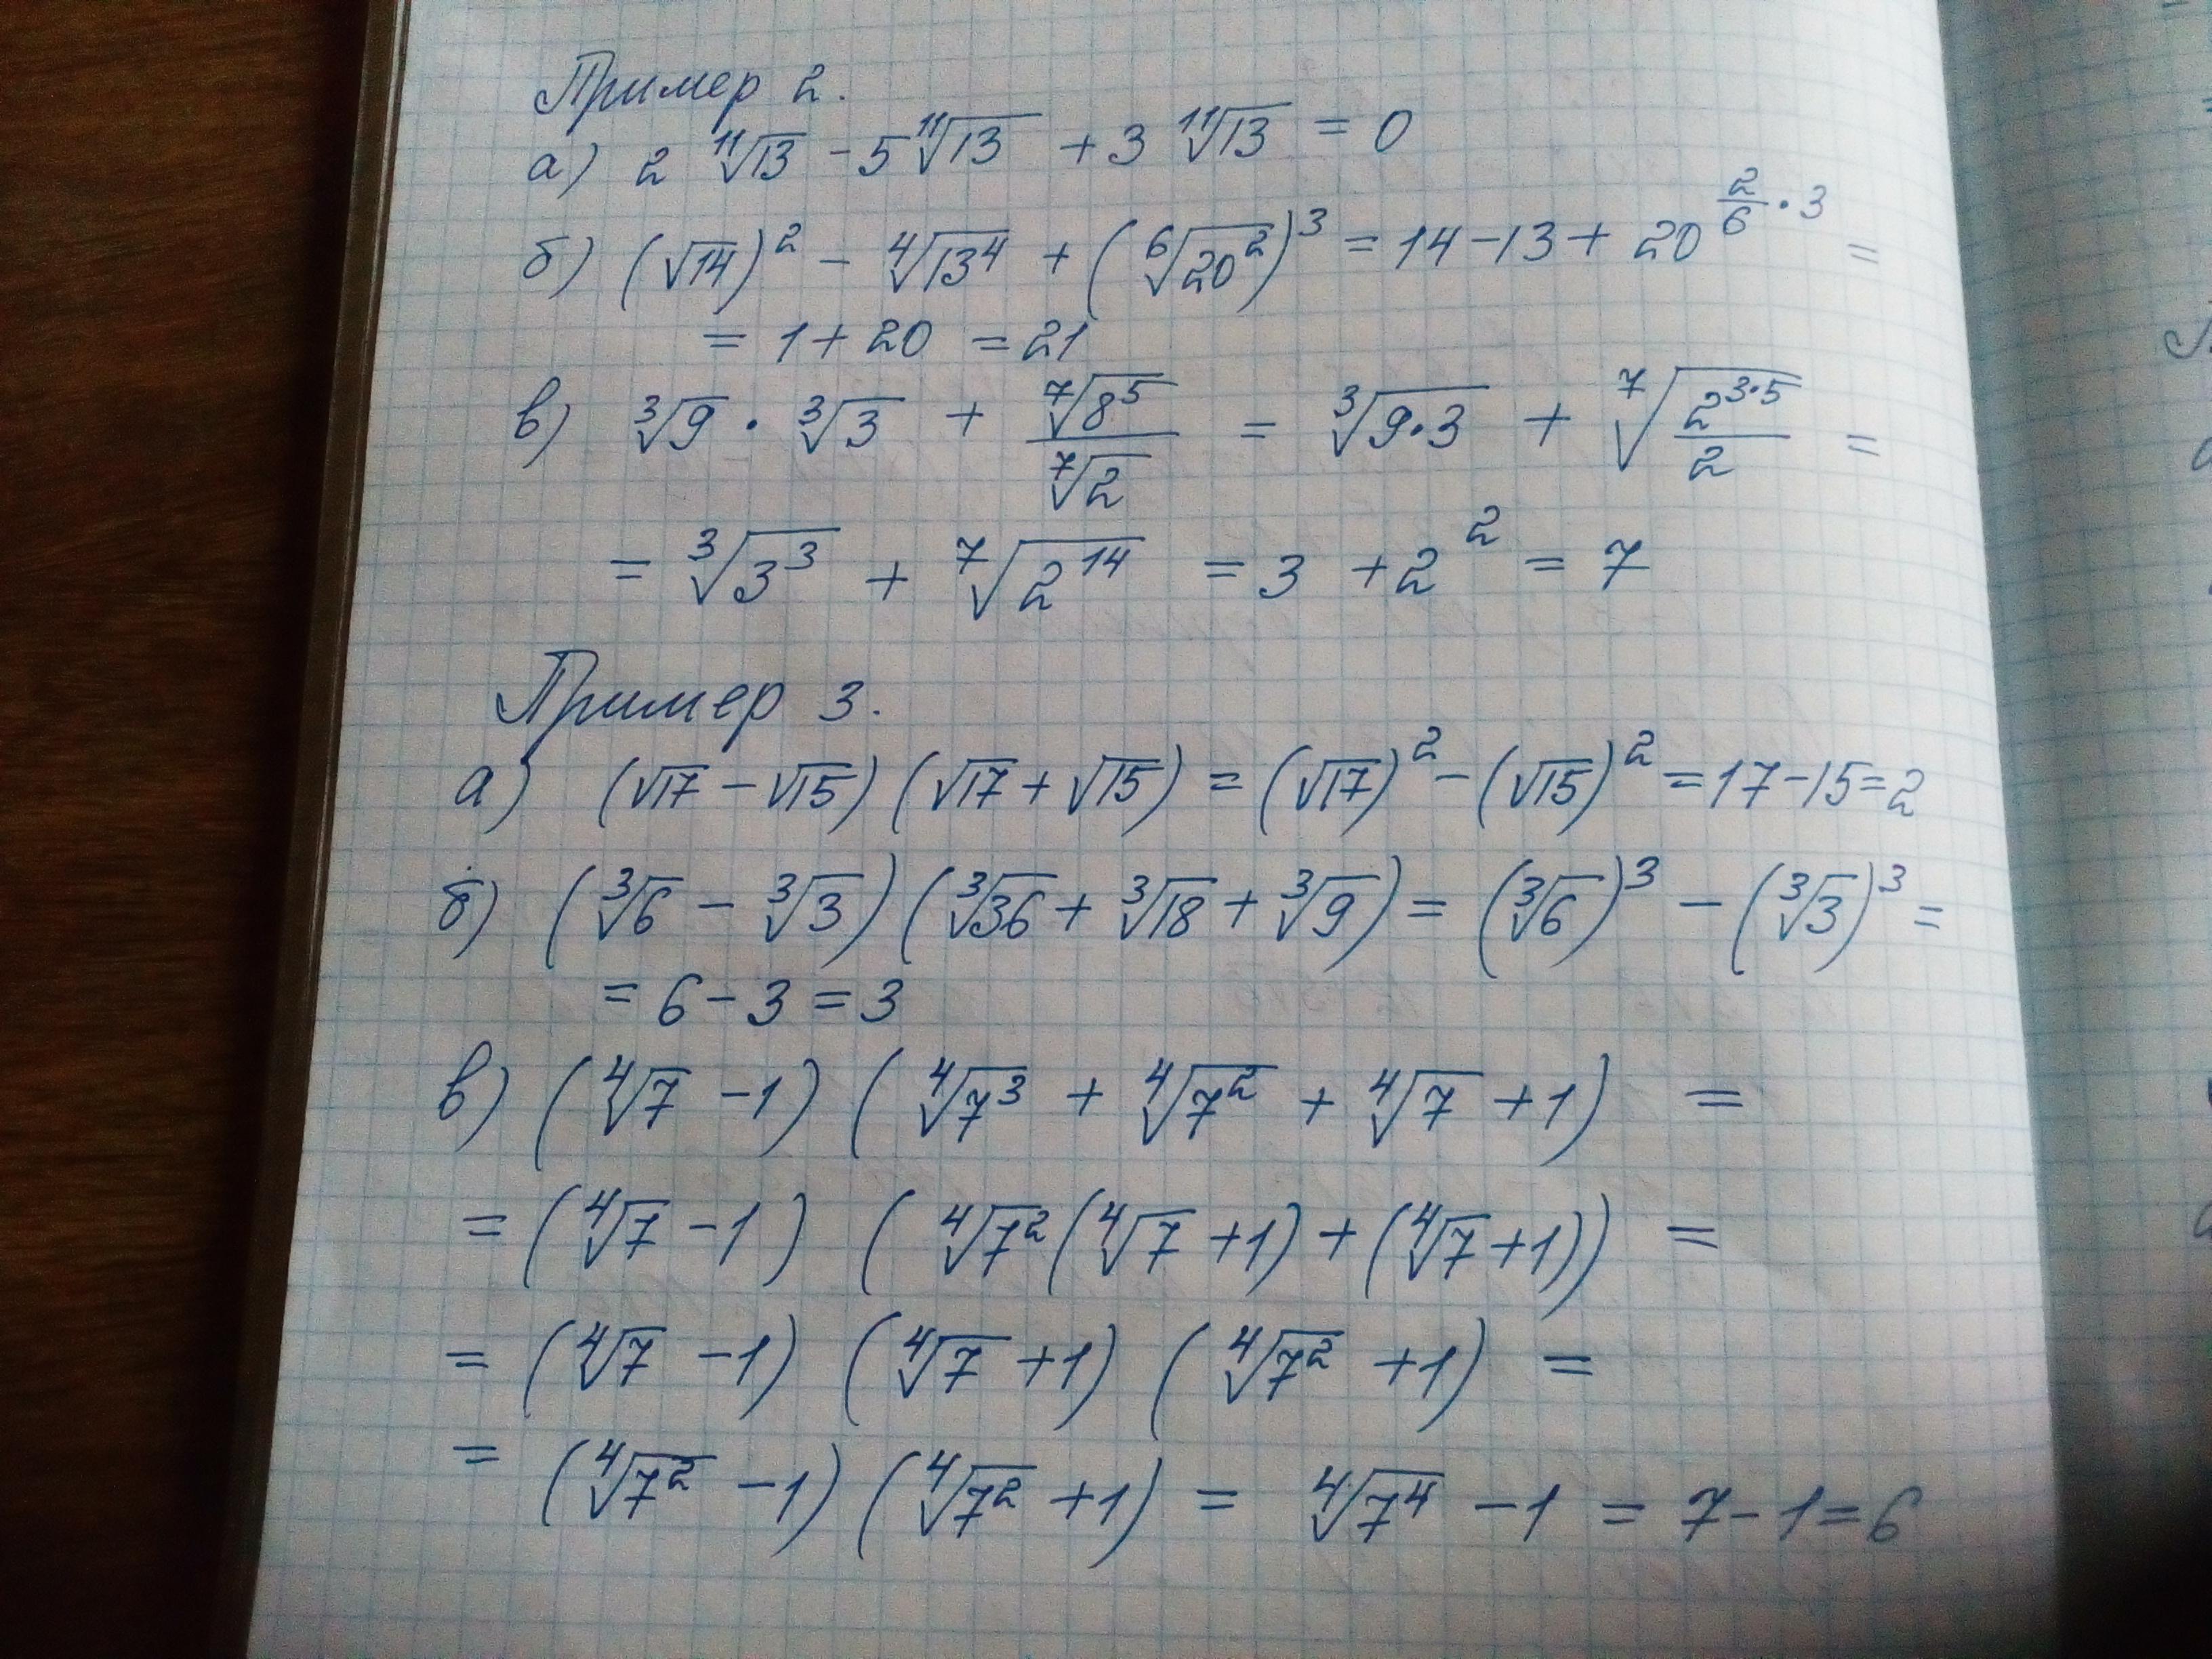 Пример 2.
а) 2 ¹¹√13 - 5 ¹¹√13 + 3 ¹¹√13 = 0
б) (√14)² - ⁴√13⁴ + (⁶√20²)³ = 14 - 13 + 20^(2/6 · 3) =
= 1 + 20 = 21
в) ³√9 · ³√3 + ⁷√8⁵ / ⁷√2 = ³√(9·3) + ⁷√(2^(3·5) / 2) =
= ³√3³ + ⁷√2¹⁴ = 3 + 2² = 7
Пример 3.
а) (√17 - √15) (√17 + √15) = (√17)² - (√15)² = 17 - 15 = 2
б) (³√6 - ³√3) (³√36 + ³√18 + ³√9) = (³√6)³ - (³√3)³ =
= 6 - 3 = 3
в) (⁴√7 - 1) (⁴√7³ + ⁴√7² + ⁴√7 + 1) =
= (⁴√7 - 1) (⁴√7² (⁴√7 + 1) + (⁴√7 + 1)) =
= (⁴√7 - 1) (⁴√7 + 1) (⁴√7² + 1) =
= (⁴√7² - 1) (⁴√7² + 1) = ⁴√7⁴ - 1 = 7 - 1 = 6